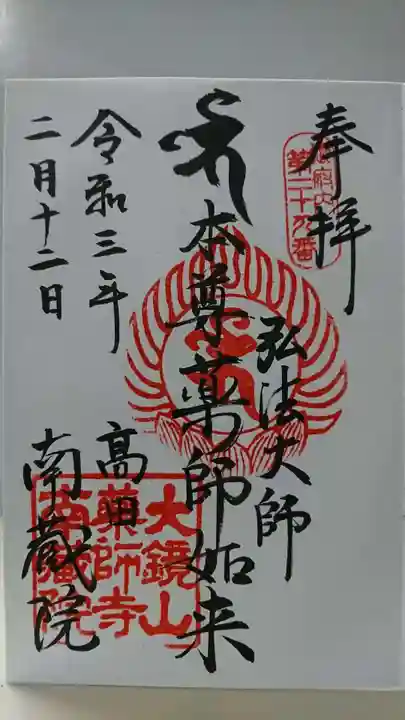 奉拝
第二十九番
弘法大師
本尊薬師如来
高田
南蔵院
令和三年
二月十二日
大鏡山
薬師寺
南蔵院